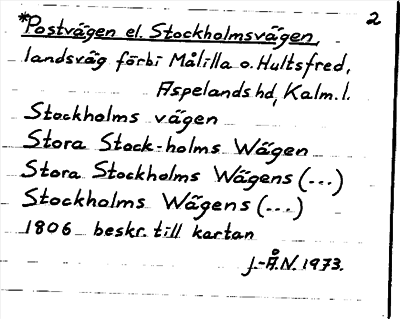 2
*Postvägen el. Stockholmsvägen,
landsväg förbi Målilla o. Hultsfred,
Aspelands hd, Kalm. l.
Stockholms vägen
Stora Stock-holms Wägen
Stora Stockholms Wägens (---)
Stockholms Wägens (---)
1806 beskr. till kartan
J.-Å.N. 1973.